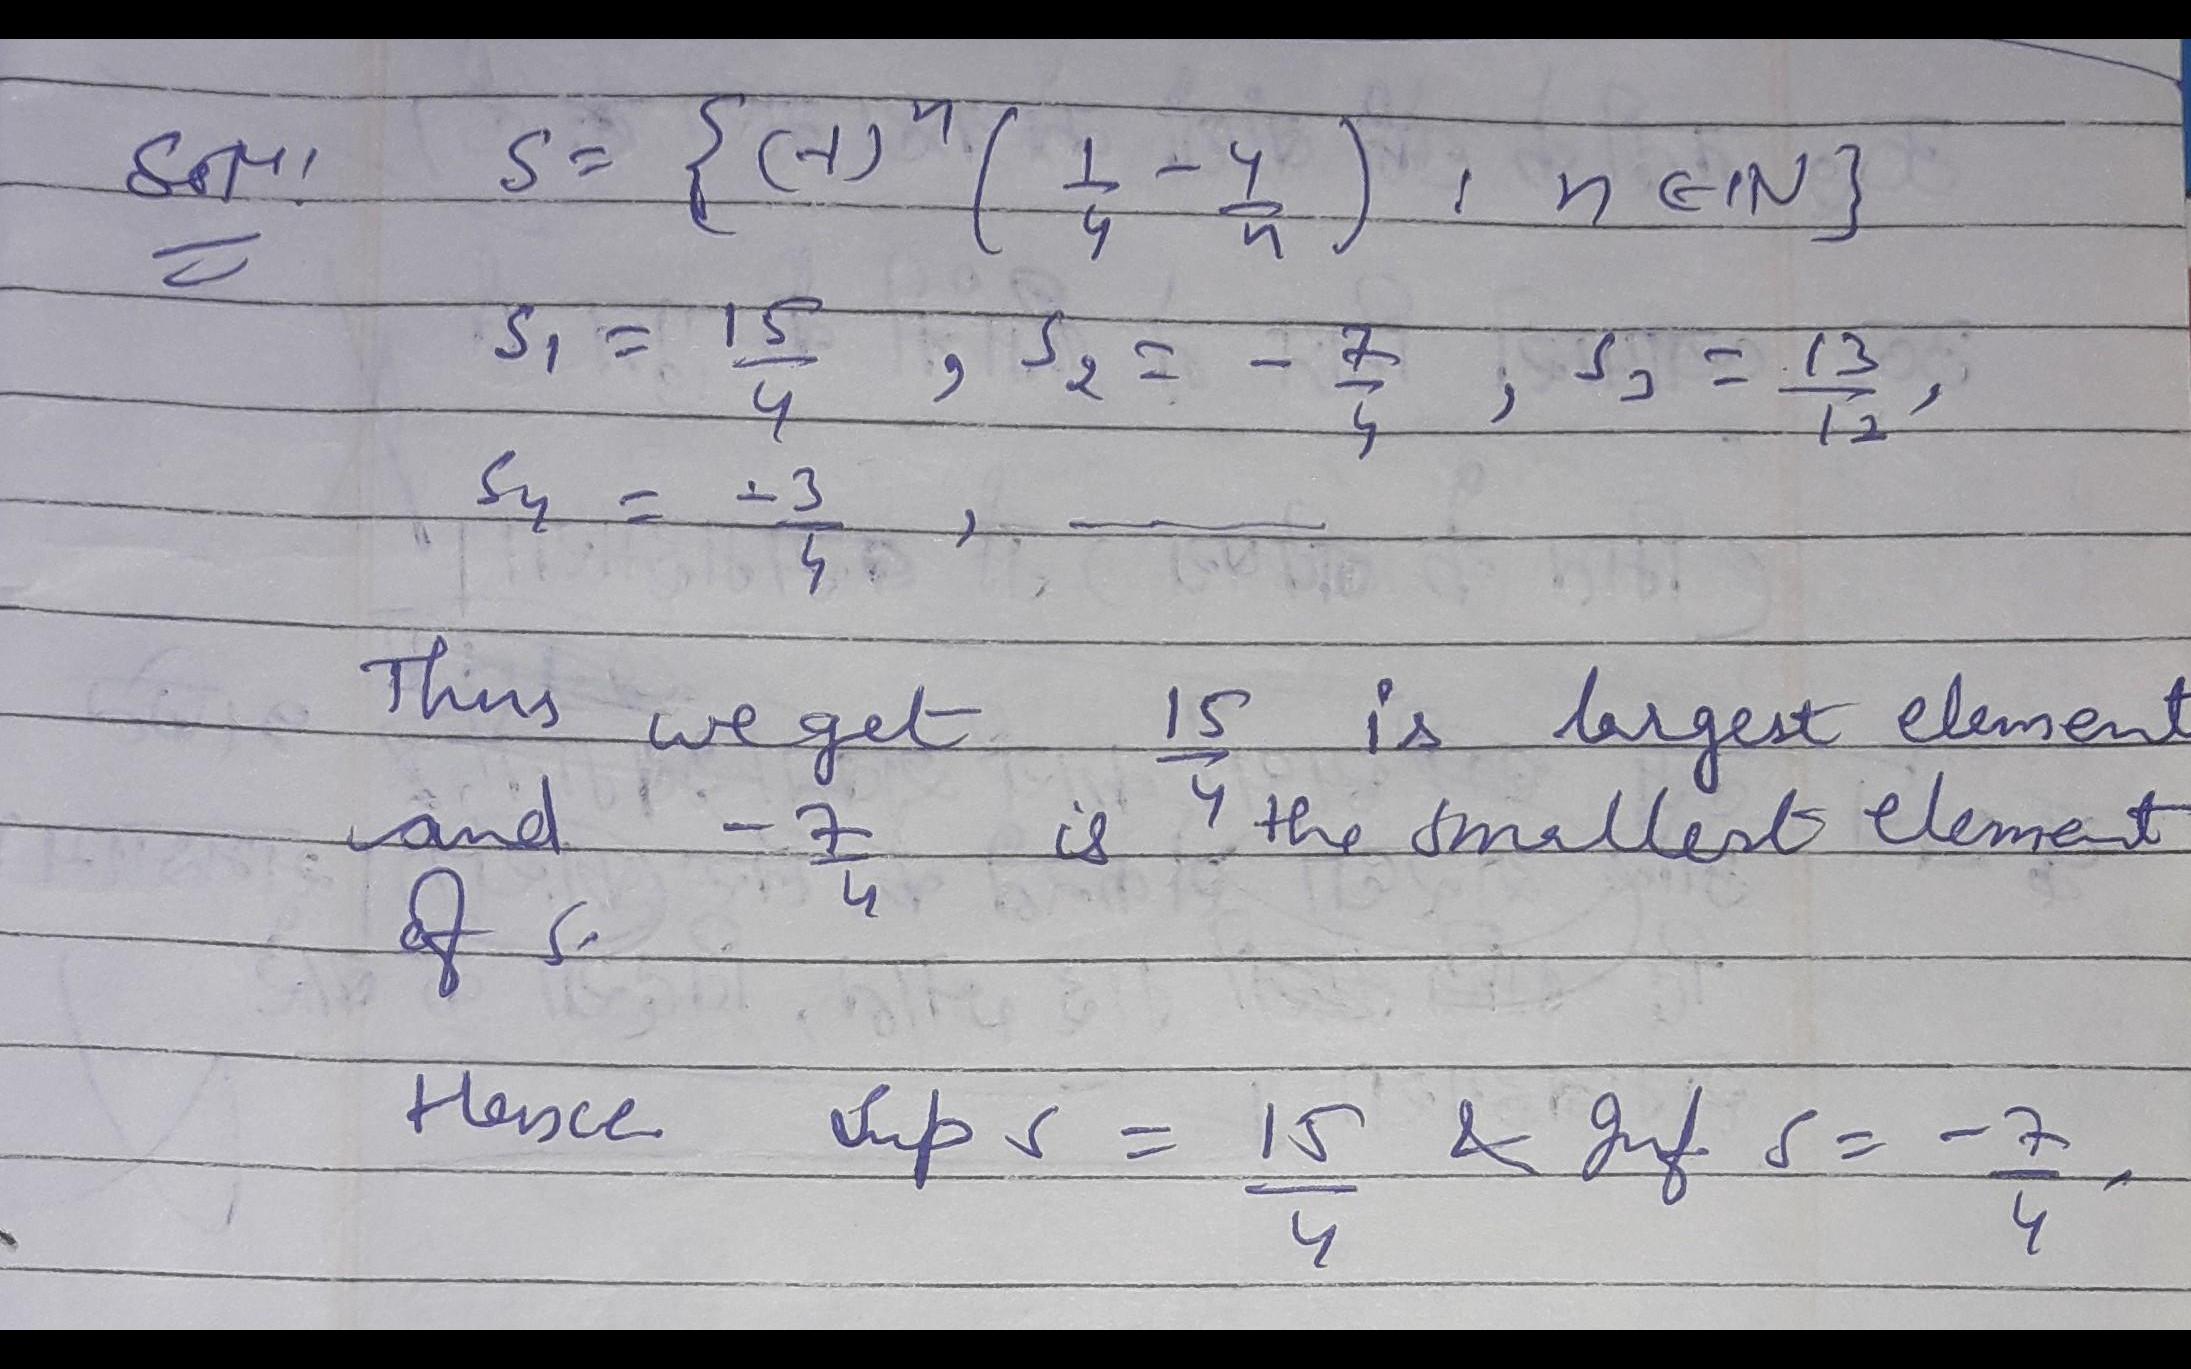 Soln. S = { (-1)^n ( 1/4 - 4/n ) , n ∈ IN }
S1 = 15/4 , S2 = - 7/4 , S3 = 13/12 ,
S4 = -3/4 , ———
Thus we get 15/4 is largest element
and - 7/4 is the smallest element
of S.
Hence Sup S = 15/4 & Inf S = - 7/4 .